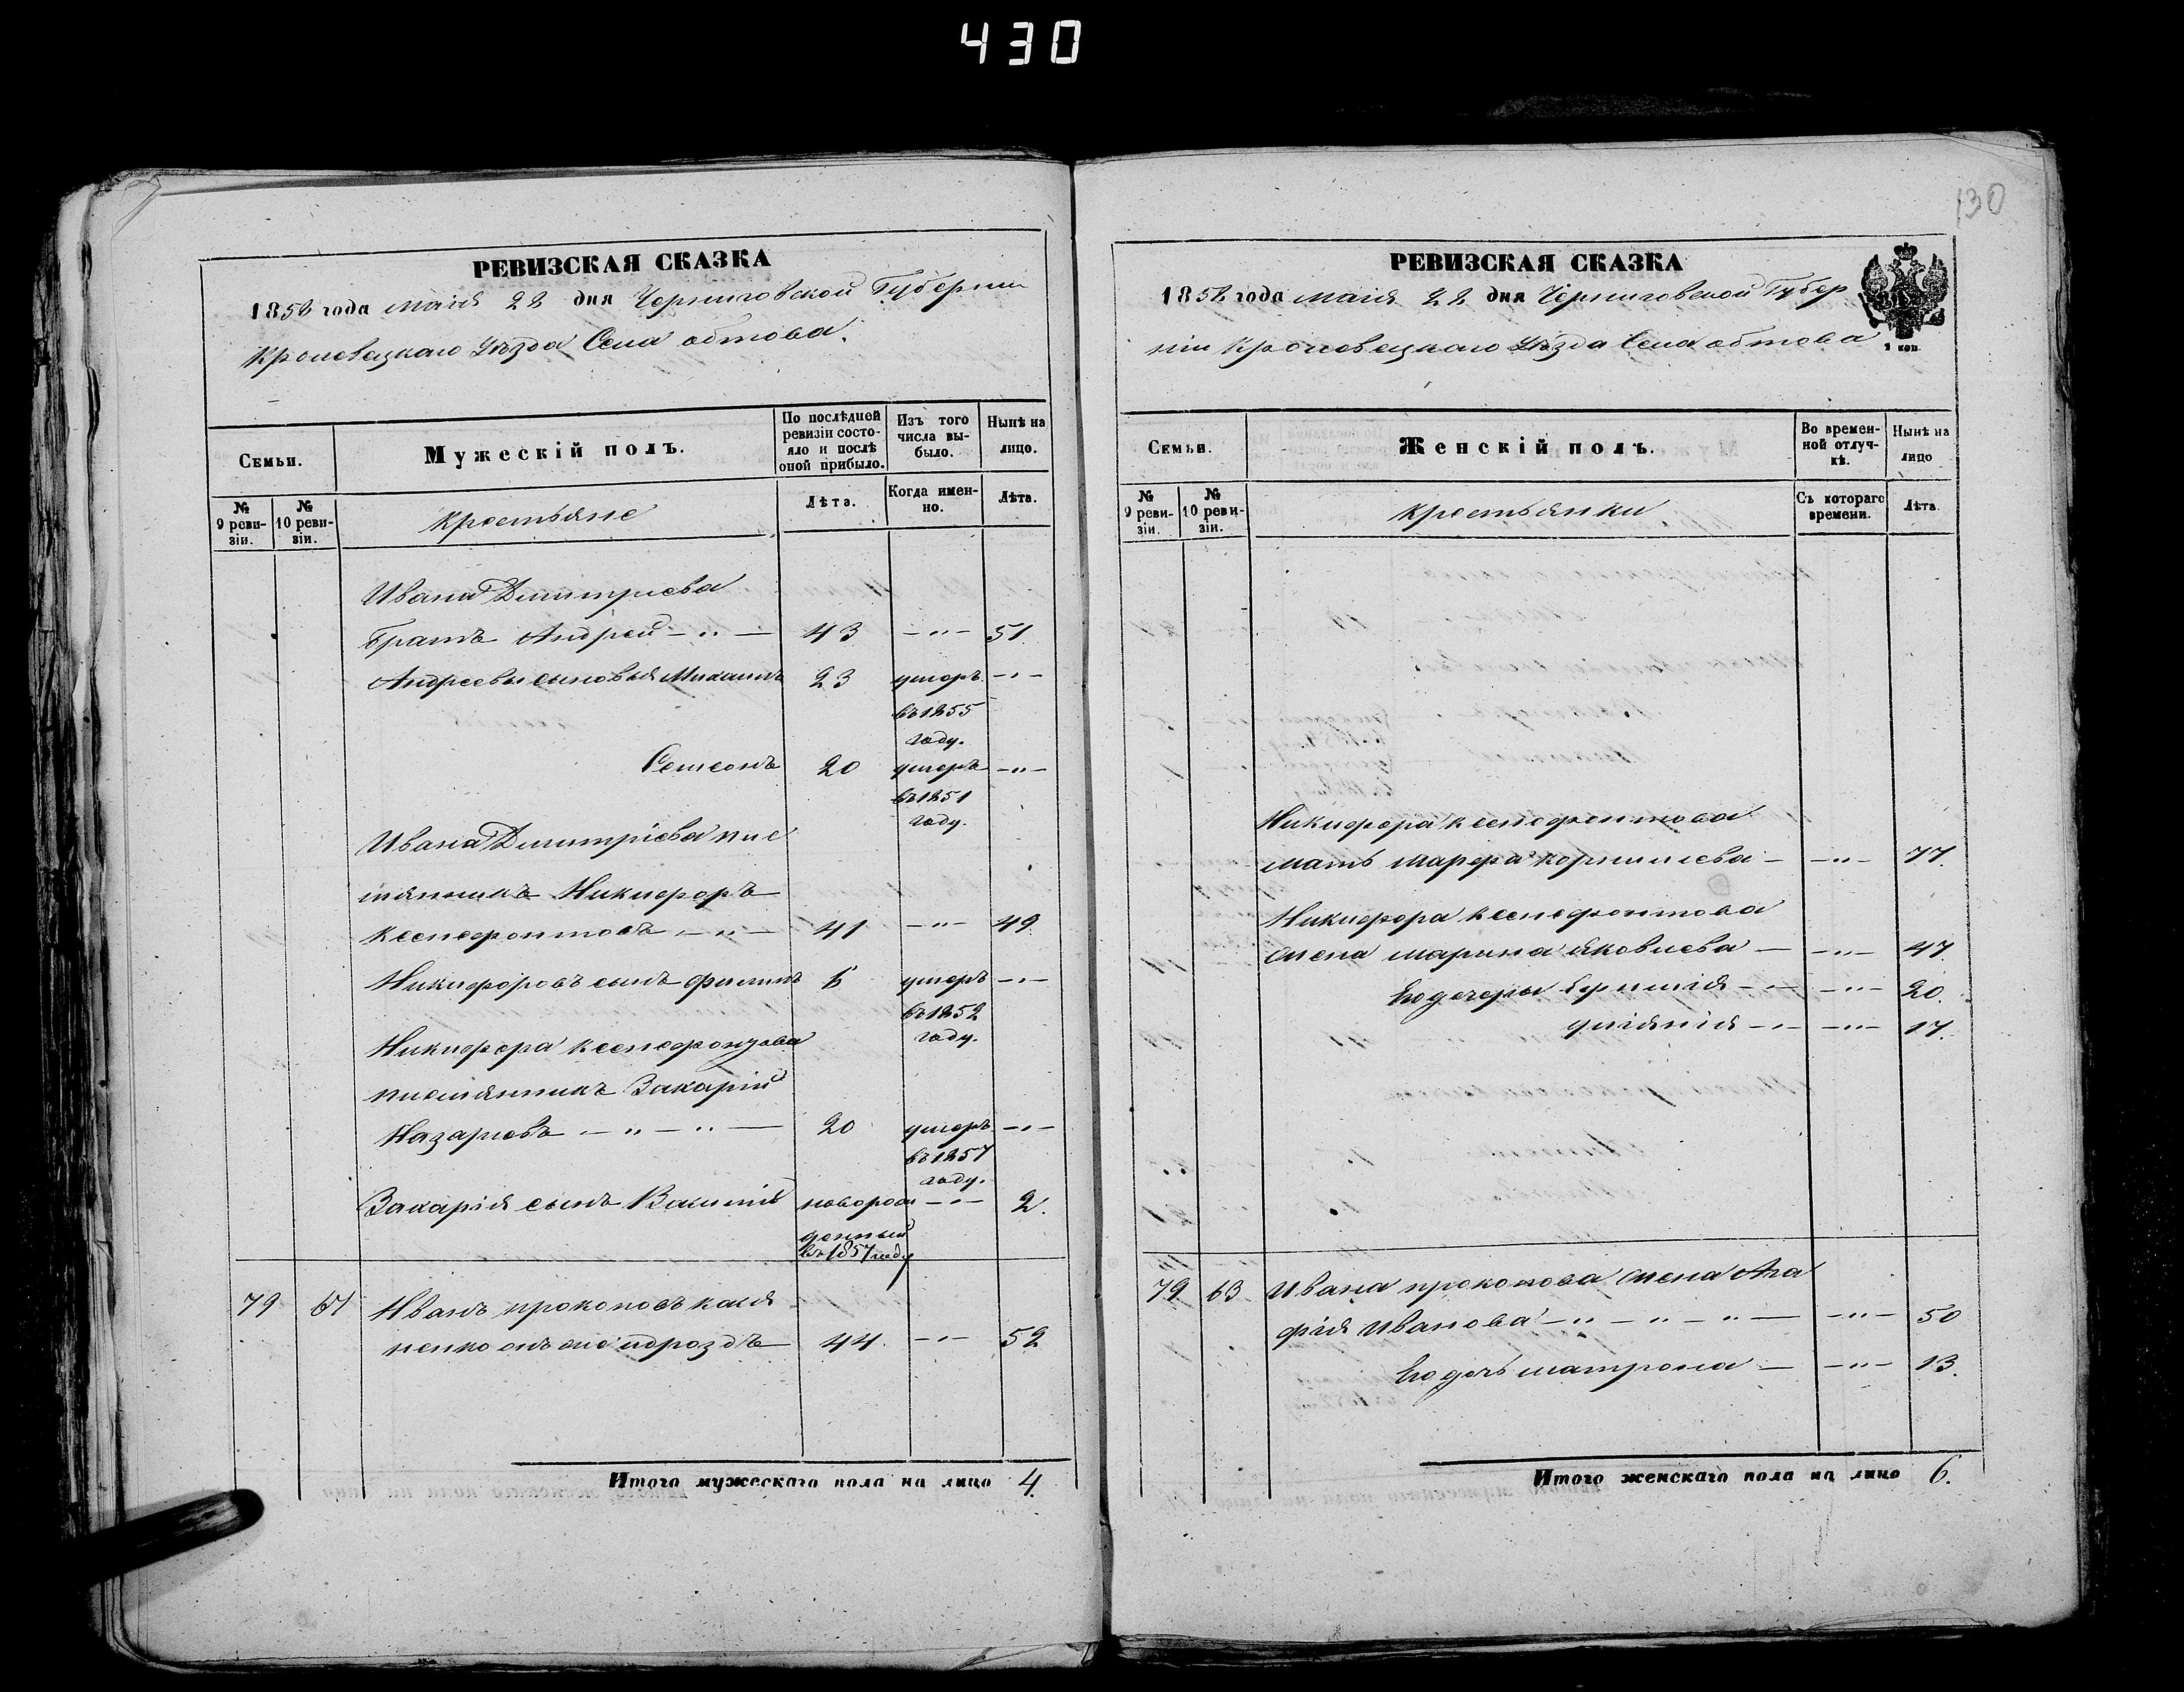 430
130
РЕВИЗСКАЯ СКАЗКА
1858 года маія 22 дня Черниговской Губернии
Кролевецкаго Уѣзда Села обтова.
Семьи.
Мужескій полъ.
По послѣдней ревизіи состояло и послѣ оной прибыло.
Изъ того числа выбыло.
Нынѣ на лицо.
№ 9 ревизіи.
№ 10 ревизіи.
крестьяне
Лѣта.
Когда именно.
Лѣта.
Ивана Димитриева
братъ Андрей — " — 43 — " — 51
Андреевы сыновья Михаилъ 23 умеръ — " —
въ 1855
году.
Семенъ 20 умеръ — " —
въ 1851
году.
Ивана Димитріева пле
мянникъ Никифоръ
ксенофонтовъ — " — 41 — " — 49
Никифоровъ сынъ филипъ 6 умеръ — " —
въ 1852
году.
Никифора ксенофонтова
племянникъ Захарій
Назариевъ — " — " — 20 умеръ — " —
въ 1857
году.
Захарія сынъ новорож — " — 2.
денный
въ 1857 году
79 Иванъ прокоповъ
44. — " — 52
Итого мужескаго пола на лицо 4.
РЕВИЗСКАЯ СКАЗКА
1858 года маія 22 дня Черниговской Губер
ніи Кролевецкаго Уѣзда Села обтова
Семьи.
Женскій полъ.
Во временной отлучкѣ.
Нынѣ на лицо
№ 9 ревизіи.
№ 10 ревизіи.
крестьянки
Съ котораго времени.
Лѣта.
Никифора ксенофонтова
мать марфа корнилиева — — " — 77.
Никифора ксенофонтова
жена марина яковлева — — " — 47
Его дочери — " — — " — 20.
— " — — " — 17.
79 63 Ивана прокопова жена Ага
фія Иванова — " — " — " — — " — 50
Его дочь матрона — — " — 13.
Итого женскаго пола на лицо 6.